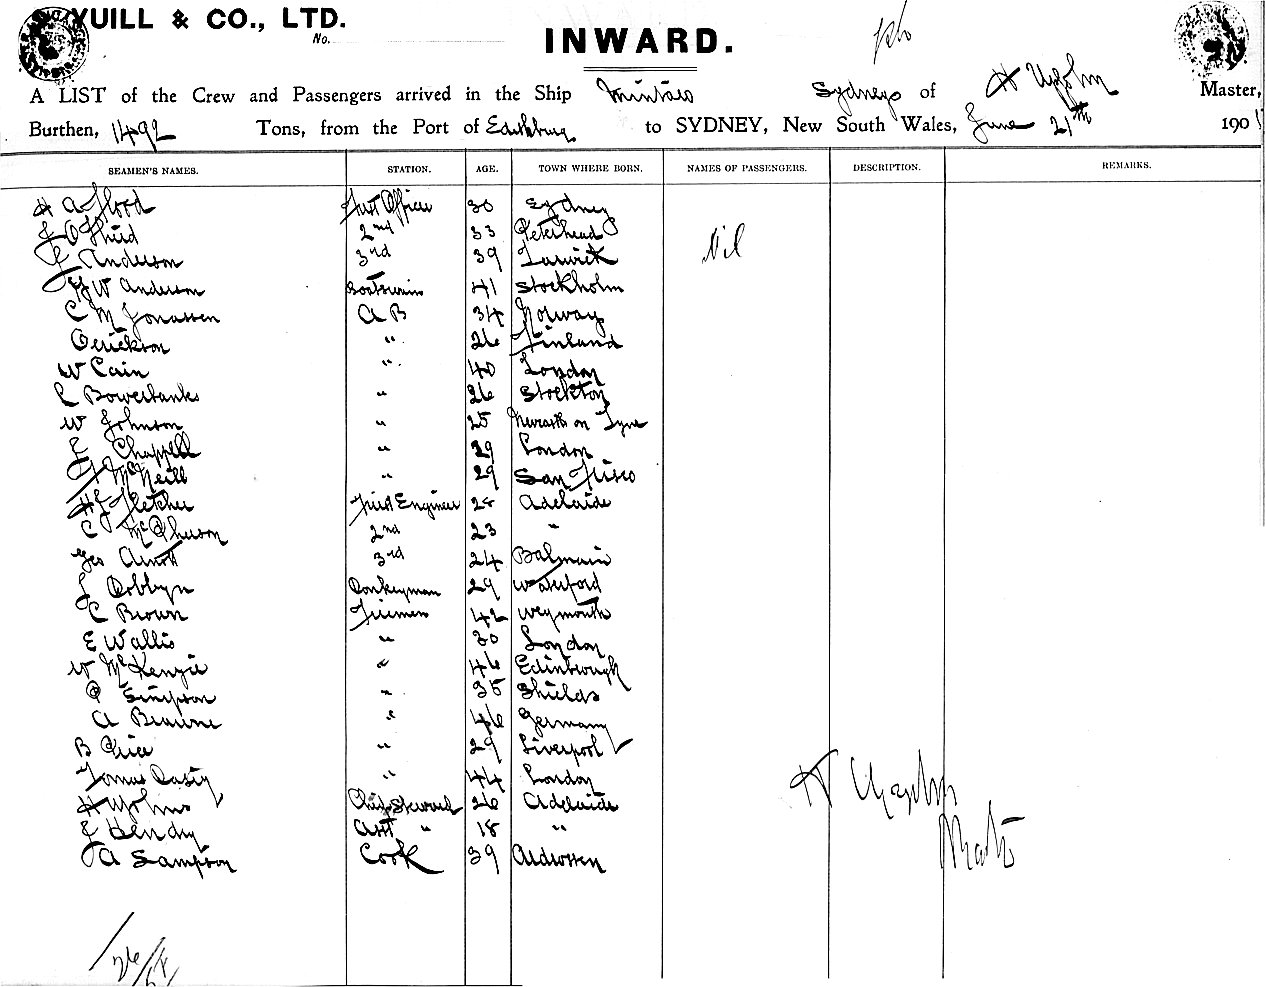 YUILL & CO., LTD.
No.
INWARD.
A LIST of the Crew and Passengers arrived in the Ship Mintaro Sydney of H Upjohn Master,
Burthen, 1492 Tons, from the Port of Edithburg to SYDNEY, New South Wales, June 21th 190
SEAMEN'S NAMES. STATION. AGE. TOWN WHERE BORN. NAMES OF PASSENGERS. DESCRIPTION. REMARKS.
H A Flood First Officer 30 Sydney
2nd 33 Peterhead Nil
J Anderson 3rd 39 Larwick
W Anderson Boatswain 41 Stockholm
C M Jonassen A B 34 Norway
O Erickson " 26 Finland
W Cain " 40 London
C Bowerbanks " 26 Stockton
W Johnson " 25 on Tyne
E Chappell " 39 London
McNeill " 29 San Frisco
H J Fletcher First Engineer 28 Adelaide
C McPherson 2nd 23 "
Geo Arnott 3rd 24 Balmain
J Dobbyn Donkeyman 29 Waterford
C Brown Firemen 42 Weymouth
E Wallis " 30 London
W McKenzie " 46 Edinbrough
P Simpson " 35 Shields
A Braune " 46 Germany
B Price " 29 Liverpool
Tomas Casey " 44 London
H Chief Steward 26 Adelaide
J Hendry Asst " 18 "
J A Sampson Cook 39 Ardrossen
H Upjohn
Master